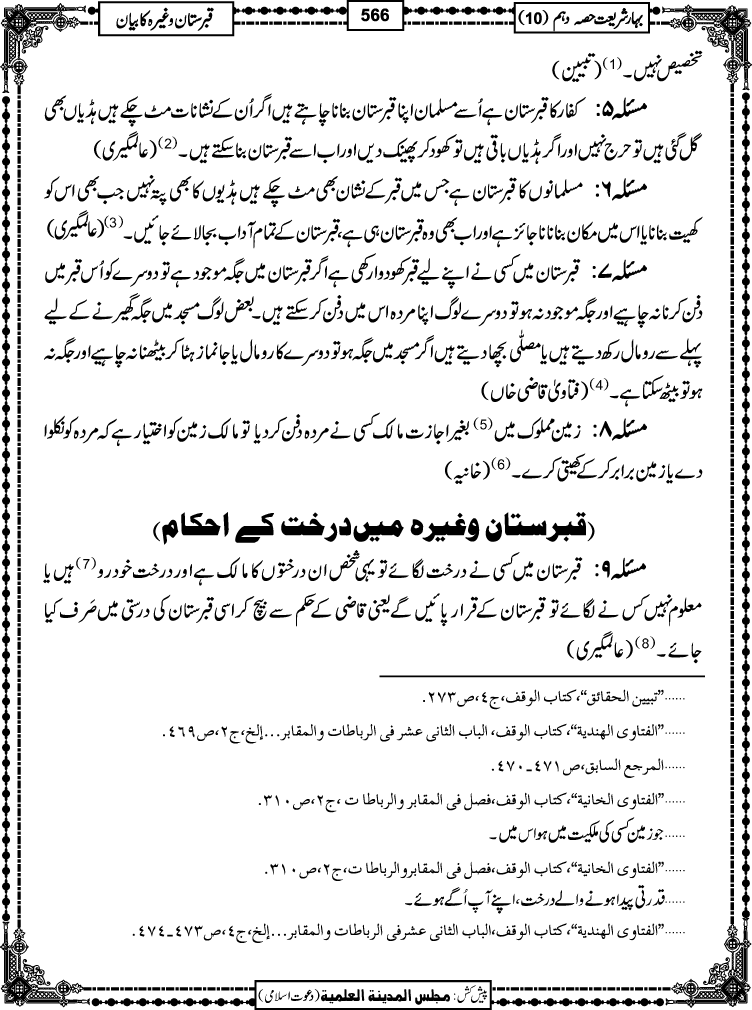 بہارِشریعت حصہ دہم (10)
566
قبرستان وغیرہ کا بیان
تخصیص نہیں۔(1) (تبیین)
مسئلہ ۵: کفار کا قبرستان ہے اُسے مسلمان اپنا قبرستان بنانا چاہتے ہیں اگر اُن کے نشانات مٹ چکے ہیں ہڈیاں بھی
گل گئی ہیں تو حرج نہیں اور اگر ہڈیاں باقی ہیں تو کھود کر پھینک دیں اور اب اسے قبرستان بنا سکتے ہیں۔(2) (عالمگیری)
مسئلہ ۶: مسلمانوں کا قبرستان ہے جس میں قبر کے نشان بھی مٹ چکے ہیں ہڈیوں کا بھی پتہ نہیں جب بھی اس کو
کھیت بنانا یا اس میں مکان بنانا ناجائز ہے اور اب بھی وہ قبرستان ہی ہے، قبرستان کے تمام آداب بجا لائے جائیں۔(3) (عالمگیری)
مسئلہ ۷: قبرستان میں کسی نے اپنے لیے قبر کھودوا رکھی ہے اگر قبرستان میں جگہ موجود ہے تو دوسرے کو اُس قبر میں
دفن کرنا نہ چاہیے اور جگہ موجود نہ ہو تو دوسرے لوگ اپنا مردہ اس میں دفن کر سکتے ہیں۔ بعض لوگ مسجد میں جگہ گھیرنے کے لیے
پہلے سے رومال رکھ دیتے ہیں یا مصلّٰی بچھا دیتے ہیں اگر مسجد میں جگہ ہو تو دوسرے کا رومال یا جانماز ہٹا کر بیٹھنا نہ چاہیے اور جگہ نہ
ہو تو بیٹھ سکتا ہے۔(4) (فتاویٰ قاضی خاں)
مسئلہ ۸: زمین مملوک میں(5) بغیر اجازت مالک کسی نے مردہ دفن کر دیا تو مالک زمین کو اختیار ہے کہ مردہ کو نکلوا
دے یا زمین برابر کر کے کھیتی کرے۔(6) (خانیہ)
(قبرستان وغیرہ میں درخت کے احکام)
مسئلہ ۹: قبرستان میں کسی نے درخت لگائے تو یہی شخص ان درختوں کا مالک ہے اور درخت خود رو(7) ہیں یا
معلوم نہیں کس نے لگائے تو قبرستان کے قرار پائیں گے یعنی قاضی کے حکم سے بیچ کر اسی قبرستان کی درستی میں صَرف کیا
جائے۔(8) (عالمگیری)
......”تبيين الحقائق“،كتاب الوقف،ج٤،ص٢٧٣.
......”الفتاوى الهندية“،كتاب الوقف،الباب الثانى عشر فى الرباطات والمقابر...إلخ،ج٢،ص٤٦٩.
......المرجع السابق،ص٤٧١-٤٧٠.
......”الفتاوى الخانية“،كتاب الوقف،فصل فى المقابر والرباطات،ج٢،ص٣١٠.
......جو زمین کسی کی ملکیت میں ہو اس میں۔
......”الفتاوى الخانية“،كتاب الوقف،فصل فى المقابر والرباطات،ج٢،ص٣١٠.
......قدرتی پیدا ہونے والے درخت، اپنے آپ اُگے ہوئے۔
......”الفتاوى الهندية“،كتاب الوقف،الباب الثانى عشر فى الرباطات والمقابر...إلخ،ج٤،ص٤٧٣-٤٧٤.
پیش کش: مجلس المدینۃ العلمیۃ (دعوتِ اسلامی)